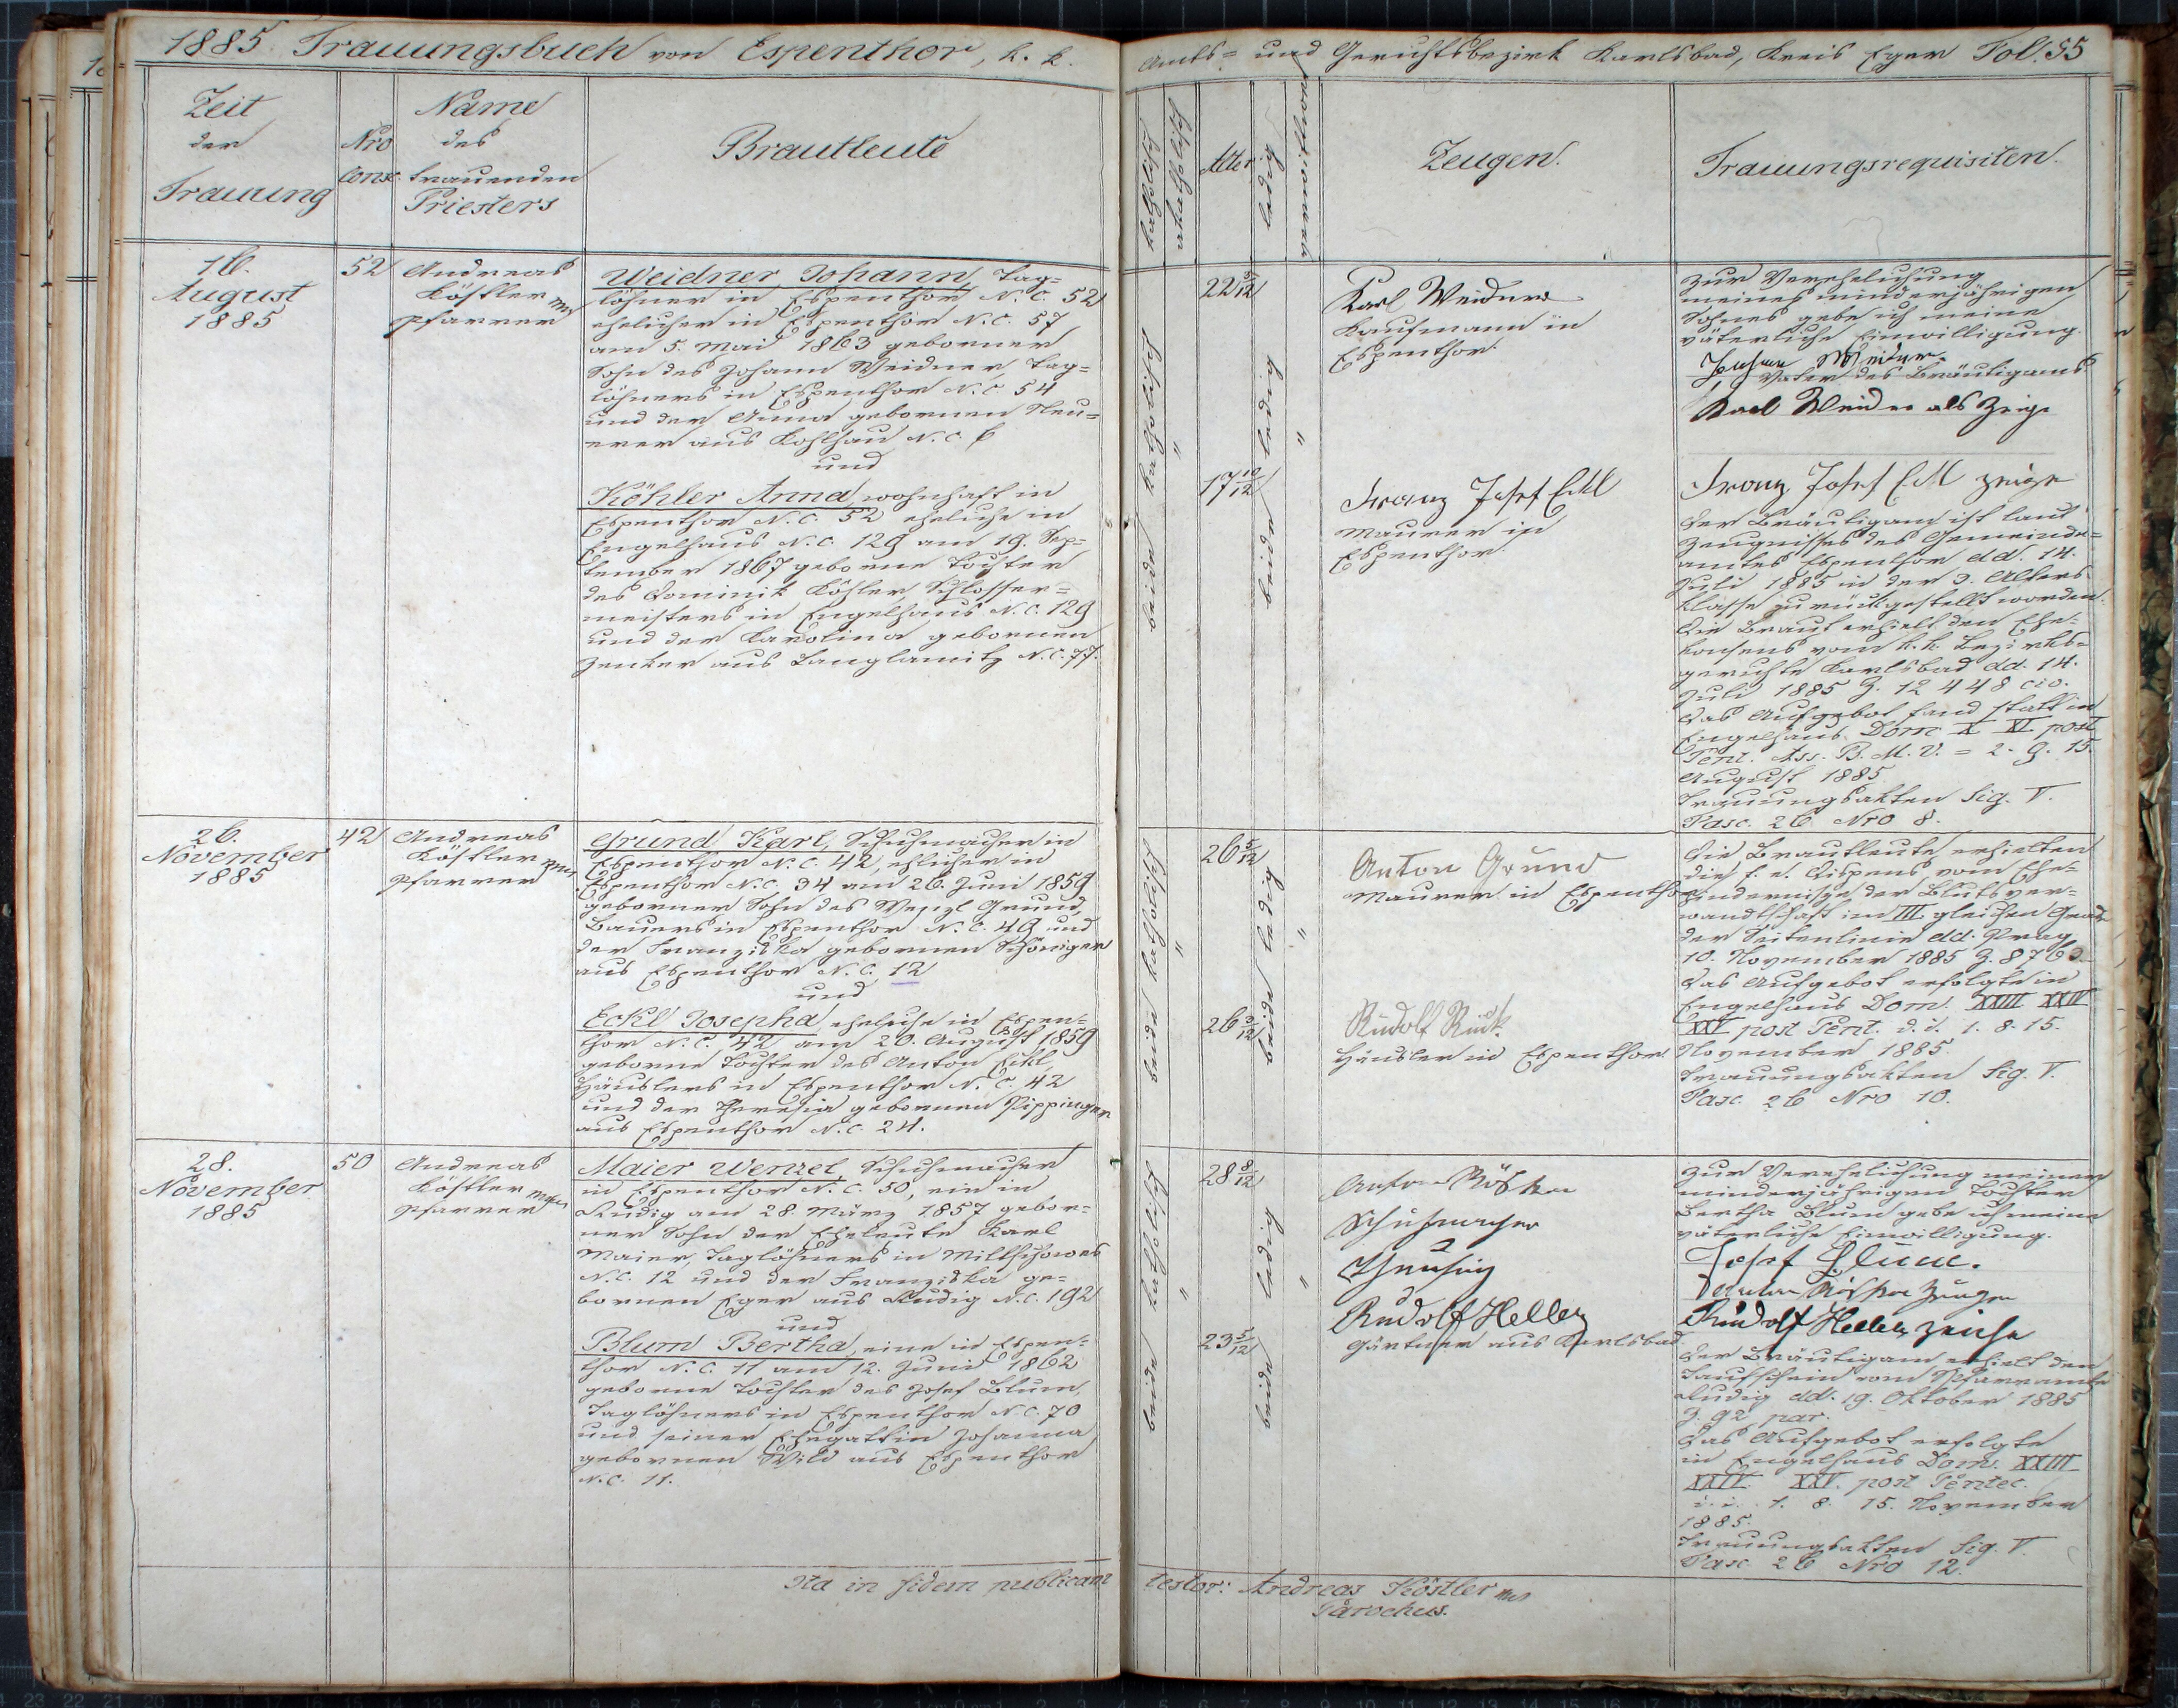 1885. Trauungsbuch von Espenthor, k. k.
Amts- und Gerichtsbezirk Karlsbad, Kreis Eger Fol. 55
Zeit
der
Trauung
Nro
Consc.
Name
des
trauenden
Priesters
Brautleute
katholisch
akatholisch
Alter
ledig
verwittwet
Zeugen.
Trauungsrequisiten.
16.
August
1885
52
Andreas
Köstler mp
Pfarrer
Weidner Johann, Tag=
löhner in Espenthor N.C. 52
ehelicher in Espenthor N.C. 57
am 5. Mai 1863 geborner
Sohn des Johann Weidner, Tag=
löhners in Espenthor N.C. 54
und der Anna gebornen Neu=
erer aus Kohlhau N.C. 6
und
Köhler Anna, wohnhaft in
Espenthor N.C. 52 eheliche in
Engelhaus N.C. 129 am 19. Sep=
tember 1867 geborne Tochter
des Dominik Köhler, Schlosser=
meisters in Engelhaus N.C. 129
und der Karolina gebornen
Zenker aus Langlamitz N.C. 77.
beide katholisch
"
22 3/12
17 10/12
beide ledig
"
Karl Weidner
Kaufmann in
Espenthor.
Franz Josef Eckl
Maurer in
Espenthor.
Zur Verehelichung
meines minderjährigen
Sohnes gebe ich meine
väterliche Einwilligung.
Johann Weidner
Vater des Bräutigams
Karl Weidner als Zeige
Franz Josef Eckl zeige
Der Bräutigam ist laut
Zeugnisses des Gemeinde=
amtes Espenthor dd. 14.
Juli 1885 in der 3. Alters=
klasse zurückgestellt worden.
Die Braut erhielt den Ehe=
konsens vom k.k. Bezirks=
gerichte Karlsbad dd. 14.
Juli 1885 Z. 12 448 civ.
Das Aufgebot fand statt in
Engelhaus Dom X XI post
Pent. Ass. B. M. V. = 2. 9. 15.
August 1885
Trauungsakten Sig. V.
Fasc. 26 Nro 8.
26.
November
1885
42
Andreas
Köstler mp
Pfarrer
Grund Karl, Schuhmacher in
Espenthor N.C. 42, ehelicher in
Espenthor N.C. 34 am 26. Juni 1859
geborner Sohn des Wenzl Grund,
Bauers in Espenthor N.C. 49 und
der Franziska gebornen Schöniger
aus Espenthor N.C. 12
und
Eckl Josepha eheliche in Espen=
thor N.C. 42 am 20. August 1859
geborne Tochter des Anton Eckl,
Häuslers in Espenthor N.C. 42
und der Theresia gebornen Pippinger
aus Espenthor N.C. 24.
beide katholisch
"
26 5/12
26 3/12
beide ledig
"
Anton Grund
Maurer in Espenthor
Rudolf Rück
Häusler in Espenthor
Die Brautleute erhielten
die f. e. Dispens vom Ehe=
hindernisse der Blutsver=
wandtschaft im III gleichen Grade
der Seitenlinie dd. Prag
10. November 1885 Z. 8760.
Das Aufgebot erfolgte in
Engelhaus Dom. XXIII XXIV
XXV post Pent. d. i. 1. 8. 15.
November 1885.
Trauungsakten Sig. V.
Fasc. 26 Nro 10.
28.
November
1885
50
Andreas
Köstler mp
Pfarrer
Maier Wenzel, Schuhmacher
in Espenthor N.C. 50, ein in
Rudig am 28. März 1857 gebor=
ner Sohn der Eheleute Karl
Maier, Taglöhners in Miltschowes
N.C. 12 und der Franziska ge=
bornen Eger aus Rudig N.C. 192
und
Blum Bertha, eine in Espen=
thor N.C. 11 am 12. Juni 1862
geborne Tochter des Josef Blum,
Taglöhners in Espenthor N.C. 70
und seiner Ehegattin Johanna,
gebornen Wild aus Espenthor
N.C. 11.
beide katholisch
"
28 8/12
23 5/12
beide ledig
"
Anton
Schuhmacher
Rudolf Heller
Gärtner aus Karlsbad
Zur Verehelichung meiner
minderjährigen Tochter
Bertha Blum gebe ich meine
väterliche Einwilligung.
Josef Blum.
Rudolf Heller zeuche
Der Bräutigam erhielt den
Taufschein vom Pfarramte
Rudig dd. 19. Oktober 1885
Z. 92 par.
Das Aufgebot erfolgte
in Engelhaus Dom. XXIII
XXIV. XXV. post Pentec.
d. i. 1. 8. 15. November
1885.
Trauungsakten Sig. V.
Fasc. 26 Nro 12.
Ita in fidem publicam
testor: Andreas Köstler mp
Parochus.